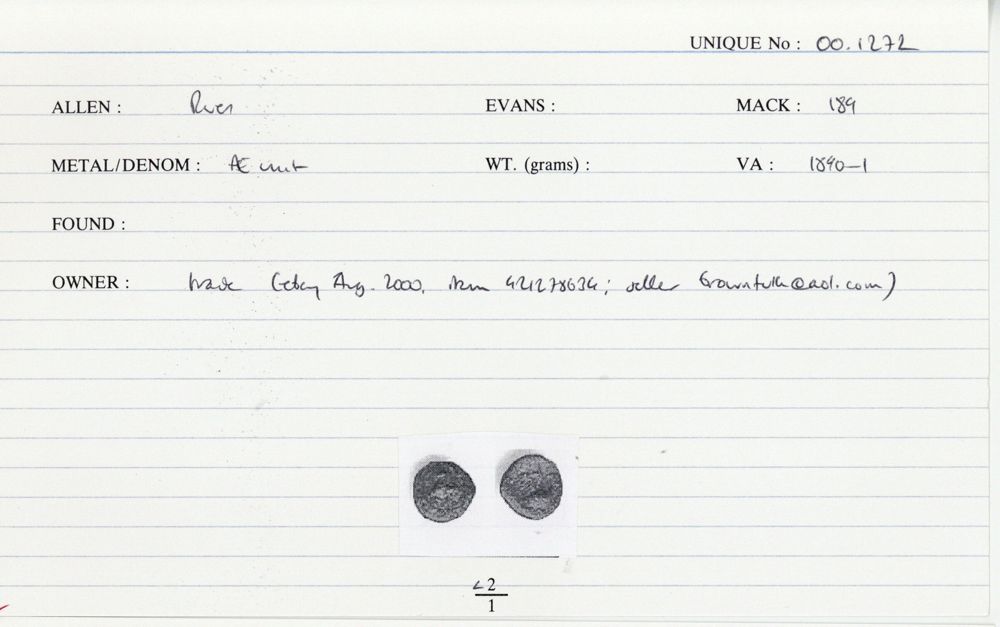 UNIQUE No : 00.1272
ALLEN : River EVANS : MACK : 189
METAL/DENOM : Æ unit WT. (grams) : VA : 1890-1
FOUND :
OWNER : trade (ebay Aug. 2000, item 421278634; seller @aol.com)
<2
1